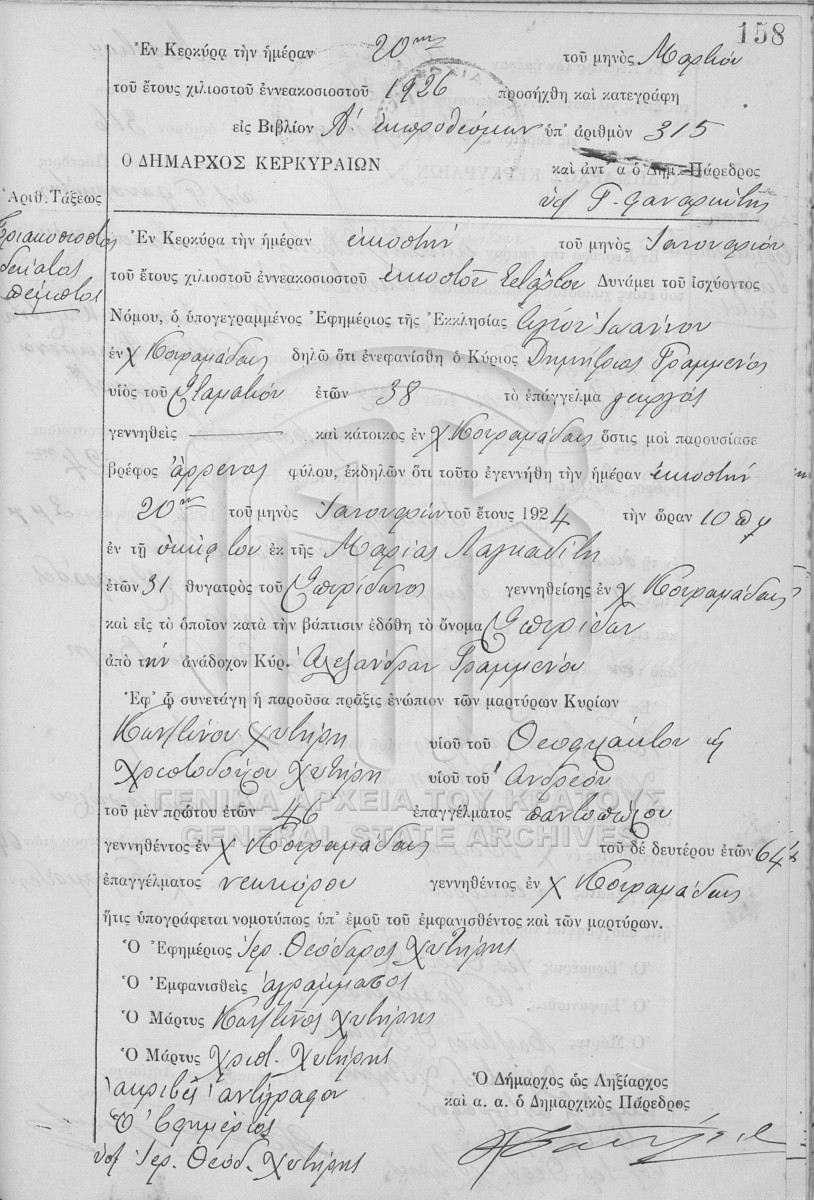 158
Ἐν Κερκύρᾳ τὴν ἡμέραν 20ην τοῦ μηνὸς Μαρτίου
τοῦ ἔτους χιλιοστοῦ ἐννεακοσιοστοῦ 1926 προσήχθη καὶ κατεγράφη
εἰς Βιβλίον Α΄ ἐκπροθέσμων ὑπ' ἀριθμὸν 315
Ο ΔΗΜΑΡΧΟΣ ΚΕΡΚΥΡΑΙΩΝ καὶ ἀντ' α ὁ Δημ. Πάρεδρος
Ἀριθ. Τάξεως
Τριακοσιοστὸς
δέκατος
πέμπτος
Ἐν Κερκύρᾳ τὴν ἡμέραν εἰκοστὴν τοῦ μηνὸς Ἰανουαρίου
τοῦ ἔτους χιλιοστοῦ ἐννεακοσιοστοῦ εἰκοστοῦ τετάρτου Δυνάμει τοῦ ἰσχύοντος
Νόμου, ὁ ὑπογεγραμμένος Ἐφημέριος τῆς Ἐκκλησίας Ἁγίου Ἰωάννου
ἐν χ Κοιραμάδαις δηλῶ ὅτι ἐνεφανίσθη ὁ Κύριος Δημήτριος Γραμμένος
υἱὸς τοῦ Σταματίου ἐτῶν 38 τὸ ἐπάγγελμα γεωργὸς
γεννηθεὶς καὶ κάτοικος ἐν χ Κοιραμάδαις ὅστις μοὶ παρουσίασε
βρέφος ἄρρενος φύλου, ἐκδηλῶν ὅτι τοῦτο ἐγεννήθη τὴν ἡμέραν εἰκοστὴν
20ην τοῦ μηνὸς Ἰανουαρίου τοῦ ἔτους 1924 τὴν ὥραν 10 πμ
ἐν τῇ οἰκίᾳ του ἐκ τῆς Μαρίας Λαγκαδίτη
ἐτῶν 31 θυγατρὸς τοῦ Σπυρίδωνος γεννηθείσης ἐν χ Κοιραμάδαις
καὶ εἰς τὸ ὁποῖον κατὰ τὴν βάπτισιν ἐδόθη τὸ ὄνομα Σπυρίδων
ἀπὸ τὴν ἀνάδοχον Κύρ. Ἀλεξάνδραν Γραμμένου
Ἐφ' ᾧ συνετάγη ἡ παροῦσα πρᾶξις ἐνώπιον τῶν μαρτύρων Κυρίων
Κωνσ/τίνου Χυτήρη υἱοῦ τοῦ Θεοφυλάκτου ἢ
Χριστοδούλου Χυτήρη υἱοῦ τοῦ Ἀνδρέου
τοῦ μὲν πρώτου ἐτῶν 46 ἐπαγγέλματος παντοπώλου
γεννηθέντος ἐν χ Κοιραμάδαις τοῦ δὲ δευτέρου ἐτῶν 64
ἐπαγγέλματος νεωκόρου γεννηθέντος ἐν χ Κοιραμάδαις
ἥτις ὑπογράφεται νομοτύπως ὑπ' ἐμοῦ τοῦ ἐμφανισθέντος καὶ τῶν μαρτύρων.
Ὁ Ἐφημέριος Ἱερ. Θεόδωρος Χυτήρης
Ὁ Ἐμφανισθεὶς ἀγράμματος
Ὁ Μάρτυς Κωνσ/τῖνος Χυτήρης
Ὁ Μάρτυς Χριστ. Χυτήρης
ἀκριβὲς ἀντίγραφον
Ὁ Ἐφημέριος
ὑπ Ἱερ. Θεόδ. Χυτήρης
Ὁ Δήμαρχος ὡς Ληξίαρχος
καὶ α. α. ὁ Δημαρχικὸς Πάρεδρος
ΓΕΝΙΚΑ ΑΡΧΕΙΑ ΤΟΥ ΚΡΑΤΟΥΣ
GENERAL STATE ARCHIVES